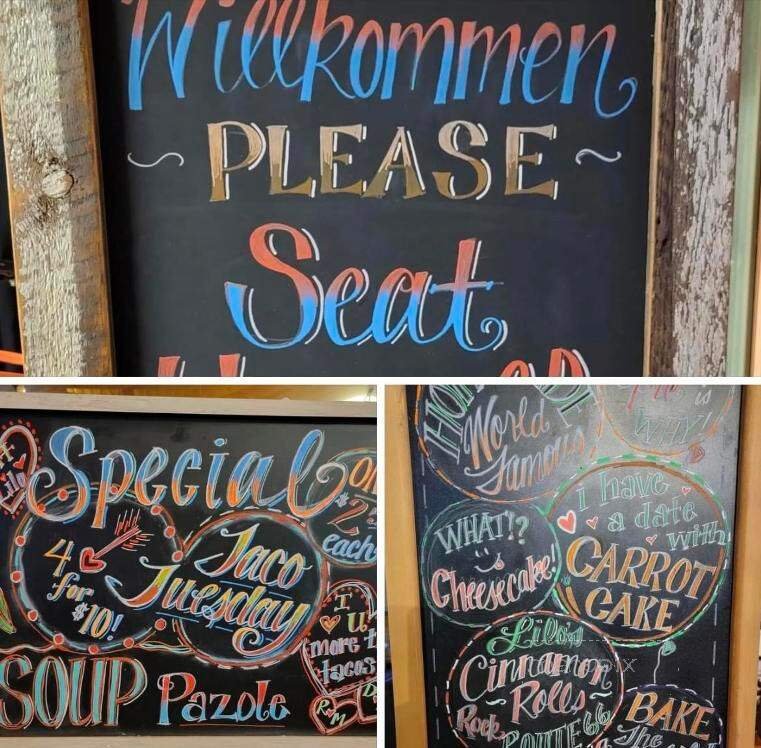 Willkommen
~ PLEASE ~
Seat
Special
4
for
$10!
Taco
Tuesday
each
SOUP Pazole
I ♥ U
more t
tacos
R♥M
World
Famous
is
WHY!
WHAT!?
Cheesecake!
i have
a date
with
CARROT
CAKE
Lilo's
Cinnamon
Rolls
Rock
ROUTE 66
BAKE
The